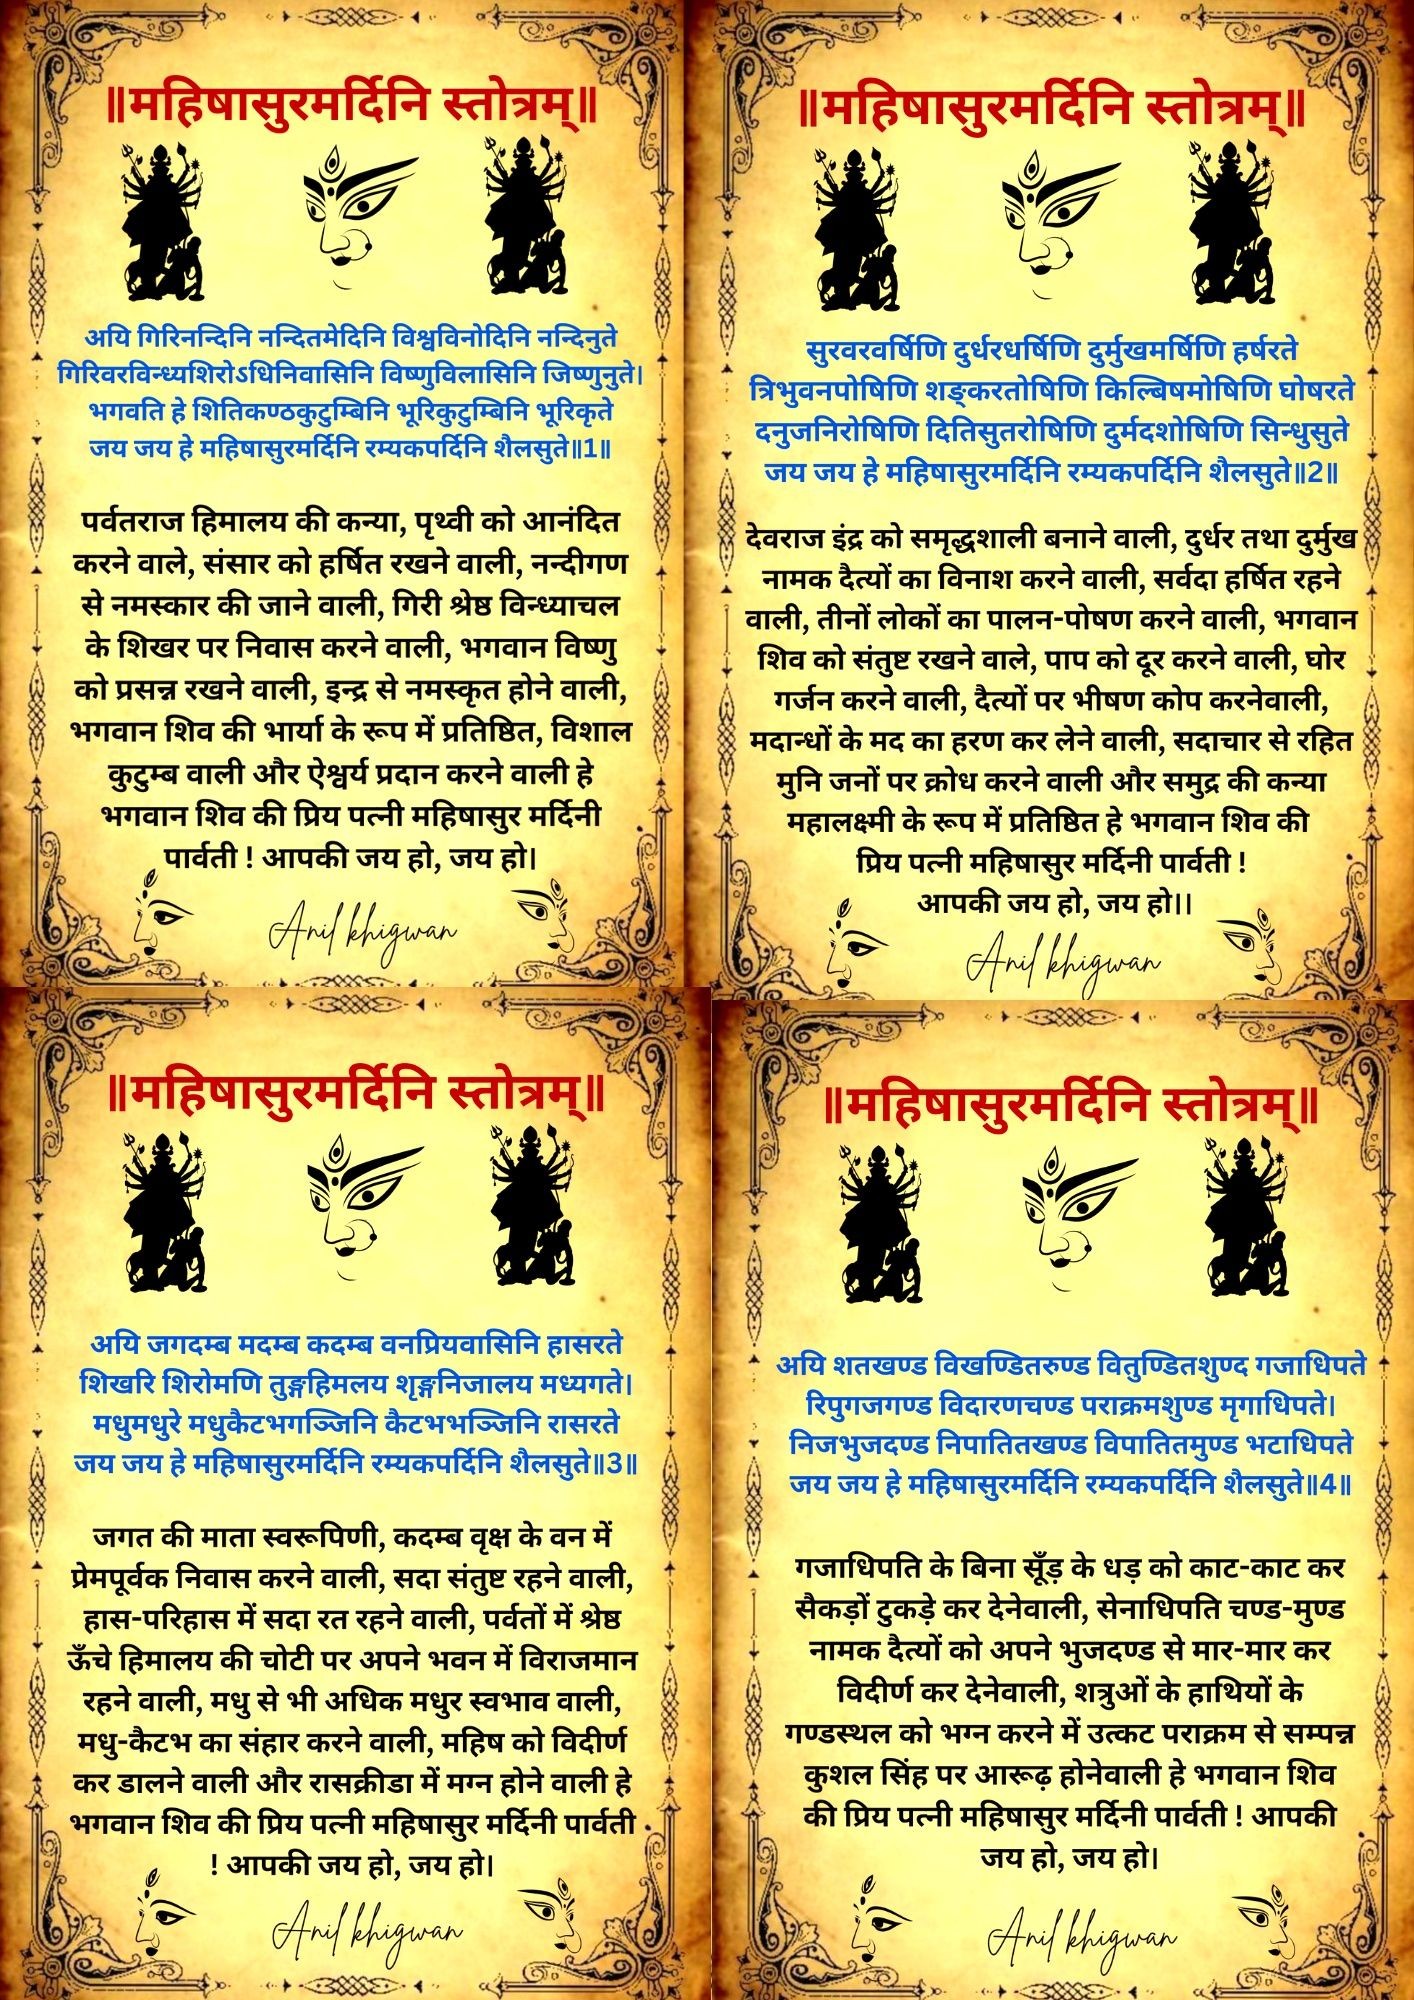 ॥महिषासुरमर्दिनि स्तोत्रम्॥
अयि गिरिनन्दिनि नन्दितमेदिनि विश्वविनोदिनि नन्दिनुते
गिरिवरविन्ध्यशिरोऽधिनिवासिनि विष्णुविलासिनि जिष्णुनुते।
भगवति हे शितिकण्ठकुटुम्बिनि भूरिकुटुम्बिनि भूरिकृते
जय जय हे महिषासुरमर्दिनि रम्यकपर्दिनि शैलसुते॥1॥
पर्वतराज हिमालय की कन्या, पृथ्वी को आनंदित
करने वाले, संसार को हर्षित रखने वाली, नन्दीगण
से नमस्कार की जाने वाली, गिरी श्रेष्ठ विन्ध्याचल
के शिखर पर निवास करने वाली, भगवान विष्णु
को प्रसन्न रखने वाली, इन्द्र से नमस्कृत होने वाली,
भगवान शिव की भार्या के रूप में प्रतिष्ठित, विशाल
कुटुम्ब वाली और ऐश्वर्य प्रदान करने वाली हे
भगवान शिव की प्रिय पत्नी महिषासुर मर्दिनी
पार्वती ! आपकी जय हो, जय हो।
Anil khigwan
॥महिषासुरमर्दिनि स्तोत्रम्॥
सुरवरवर्षिणि दुर्धरधर्षिणि दुर्मुखमर्षिणि हर्षरते
त्रिभुवनपोषिणि शङ्करतोषिणि किल्बिषमोषिणि घोषरते
दनुजनिरोषिणि दितिसुतरोषिणि दुर्मदशोषिणि सिन्धुसुते
जय जय हे महिषासुरमर्दिनि रम्यकपर्दिनि शैलसुते॥2॥
देवराज इंद्र को समृद्धशाली बनाने वाली, दुर्धर तथा दुर्मुख
नामक दैत्यों का विनाश करने वाली, सर्वदा हर्षित रहने
वाली, तीनों लोकों का पालन-पोषण करने वाली, भगवान
शिव को संतुष्ट रखने वाले, पाप को दूर करने वाली, घोर
गर्जन करने वाली, दैत्यों पर भीषण कोप करनेवाली,
मदान्धों के मद का हरण कर लेने वाली, सदाचार से रहित
मुनि जनों पर क्रोध करने वाली और समुद्र की कन्या
महालक्ष्मी के रूप में प्रतिष्ठित हे भगवान शिव की
प्रिय पत्नी महिषासुर मर्दिनी पार्वती !
आपकी जय हो, जय हो।।
Anil khigwan
॥महिषासुरमर्दिनि स्तोत्रम्॥
अयि जगदम्ब मदम्ब कदम्ब वनप्रियवासिनि हासरते
शिखरि शिरोमणि तुङ्गहिमलय शृङ्गनिजालय मध्यगते।
मधुमधुरे मधुकैटभगञ्जिनि कैटभभञ्जिनि रासरते
जय जय हे महिषासुरमर्दिनि रम्यकपर्दिनि शैलसुते॥3॥
जगत की माता स्वरूपिणी, कदम्ब वृक्ष के वन में
प्रेमपूर्वक निवास करने वाली, सदा संतुष्ट रहने वाली,
हास-परिहास में सदा रत रहने वाली, पर्वतों में श्रेष्ठ
ऊँचे हिमालय की चोटी पर अपने भवन में विराजमान
रहने वाली, मधु से भी अधिक मधुर स्वभाव वाली,
मधु-कैटभ का संहार करने वाली, महिष को विदीर्ण
कर डालने वाली और रासक्रीडा में मग्न होने वाली हे
भगवान शिव की प्रिय पत्नी महिषासुर मर्दिनी पार्वती
! आपकी जय हो, जय हो।
Anil khigwan
॥महिषासुरमर्दिनि स्तोत्रम्॥
अयि शतखण्ड विखण्डितरुण्ड वितुण्डितशुण्द गजाधिपते
रिपुगजगण्ड विदारणचण्ड पराक्रमशुण्ड मृगाधिपते।
निजभुजदण्ड निपातितखण्ड विपातितमुण्ड भटाधिपते
जय जय हे महिषासुरमर्दिनि रम्यकपर्दिनि शैलसुते॥4॥
गजाधिपति के बिना सूँड़ के धड़ को काट-काट कर
सैकड़ों टुकड़े कर देनेवाली, सेनाधिपति चण्ड-मुण्ड
नामक दैत्यों को अपने भुजदण्ड से मार-मार कर
विदीर्ण कर देनेवाली, शत्रुओं के हाथियों के
गण्डस्थल को भग्न करने में उत्कट पराक्रम से सम्पन्न
कुशल सिंह पर आरूढ़ होनेवाली हे भगवान शिव
की प्रिय पत्नी महिषासुर मर्दिनी पार्वती ! आपकी
जय हो, जय हो।
Anil khigwan